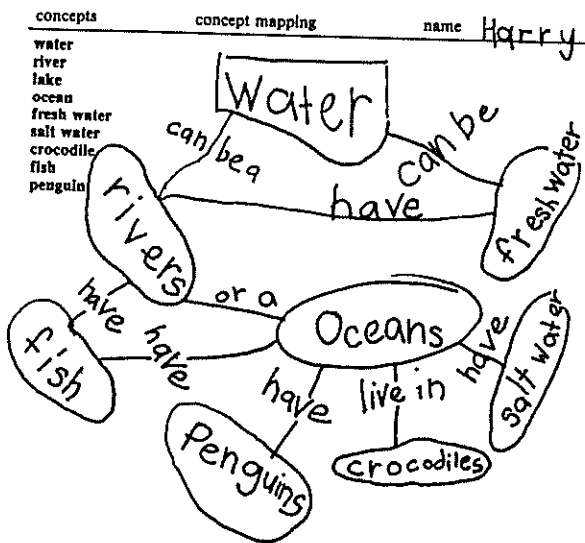 concepts concept mapping name Harry
water
river
lake
ocean
fresh water
salt water
crocodile
fish
penguin
Water
can be a
can be
rivers
have
fresh water
have
have
or a
Oceans
have
salt water
fish
have
live in
Penguins
crocodiles